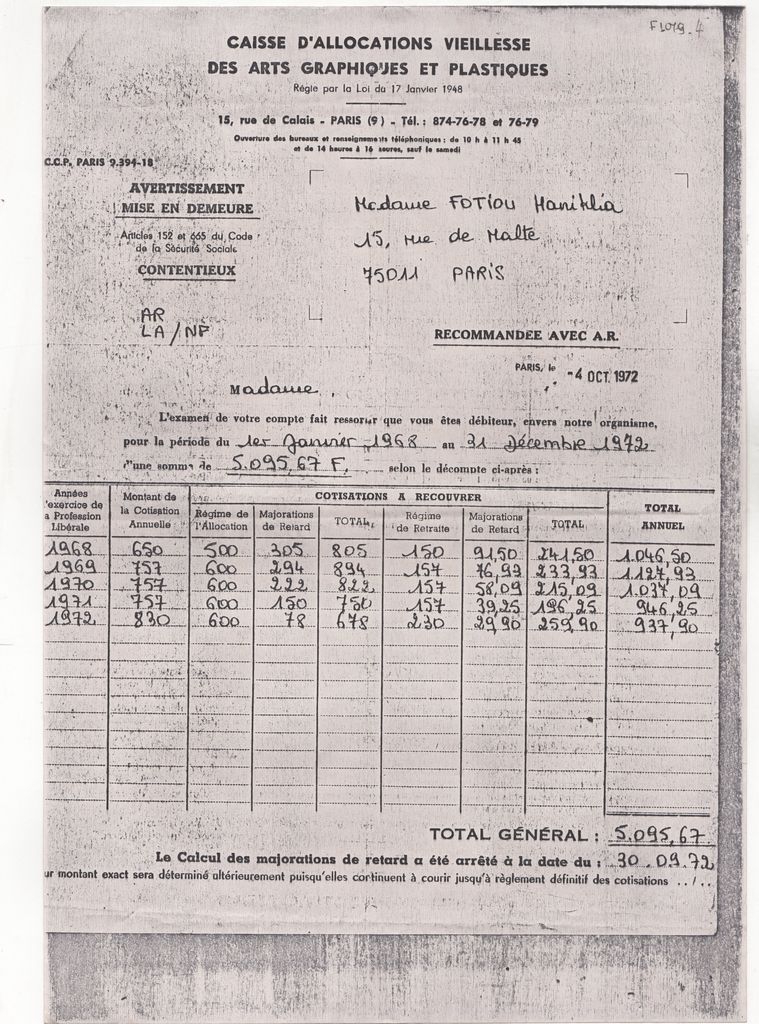 F1079.4
CAISSE D'ALLOCATIONS VIEILLESSE
DES ARTS GRAPHIQUES ET PLASTIQUES
Régie par la Loi du 17 Janvier 1948
15, rue de Calais - PARIS (9) - Tél. : 874-76-78 et 76-79
Ouverture des bureaux et renseignements téléphoniques : de 10 h à 11 h 45
et de 14 heures à 16 heures, sauf le samedi
C.C.P. PARIS 9.394-18
AVERTISSEMENT
MISE EN DEMEURE
Articles 152 et 665 du Code
de la Sécurité Sociale
CONTENTIEUX
AR
LA/NP
Madame FOTIOU Haniklia
15, rue de Malte
75011 PARIS
RECOMMANDEE AVEC A.R.
PARIS, le -4 OCT. 1972
Madame,
L'examen de votre compte fait ressortir que vous êtes débiteur, envers notre organisme,
pour la période du 1er Janvier 1968 au 31 Décembre 1972
d'une somme de 5.095,67 F, selon le décompte ci-après :
Années
'exercice de
a Profession
Libérale
Montant de
la Cotisation
Annuelle
COTISATIONS A RECOUVRER
Régime de
l'Allocation
Majorations
de Retard
TOTAL
Régime
de Retraite
Majorations
de Retard
TOTAL
TOTAL
ANNUEL
1968 650 500 305 805 150 91,50 241,50 1.046,50
1969 757 600 294 894 157 76,93 233,93 1.127,93
1970 757 600 222 822 157 58,09 215,09 1.037,09
1971 757 600 150 750 157 39,25 196,25 946,25
1972 830 600 78 678 230 29,90 259,90 937,90
TOTAL GÉNÉRAL : 5.095,67
Le Calcul des majorations de retard a été arrêté à la date du : 30.09.72
ur montant exact sera déterminé ultérieurement puisqu'elles continuent à courir jusqu'à règlement définitif des cotisations ../..